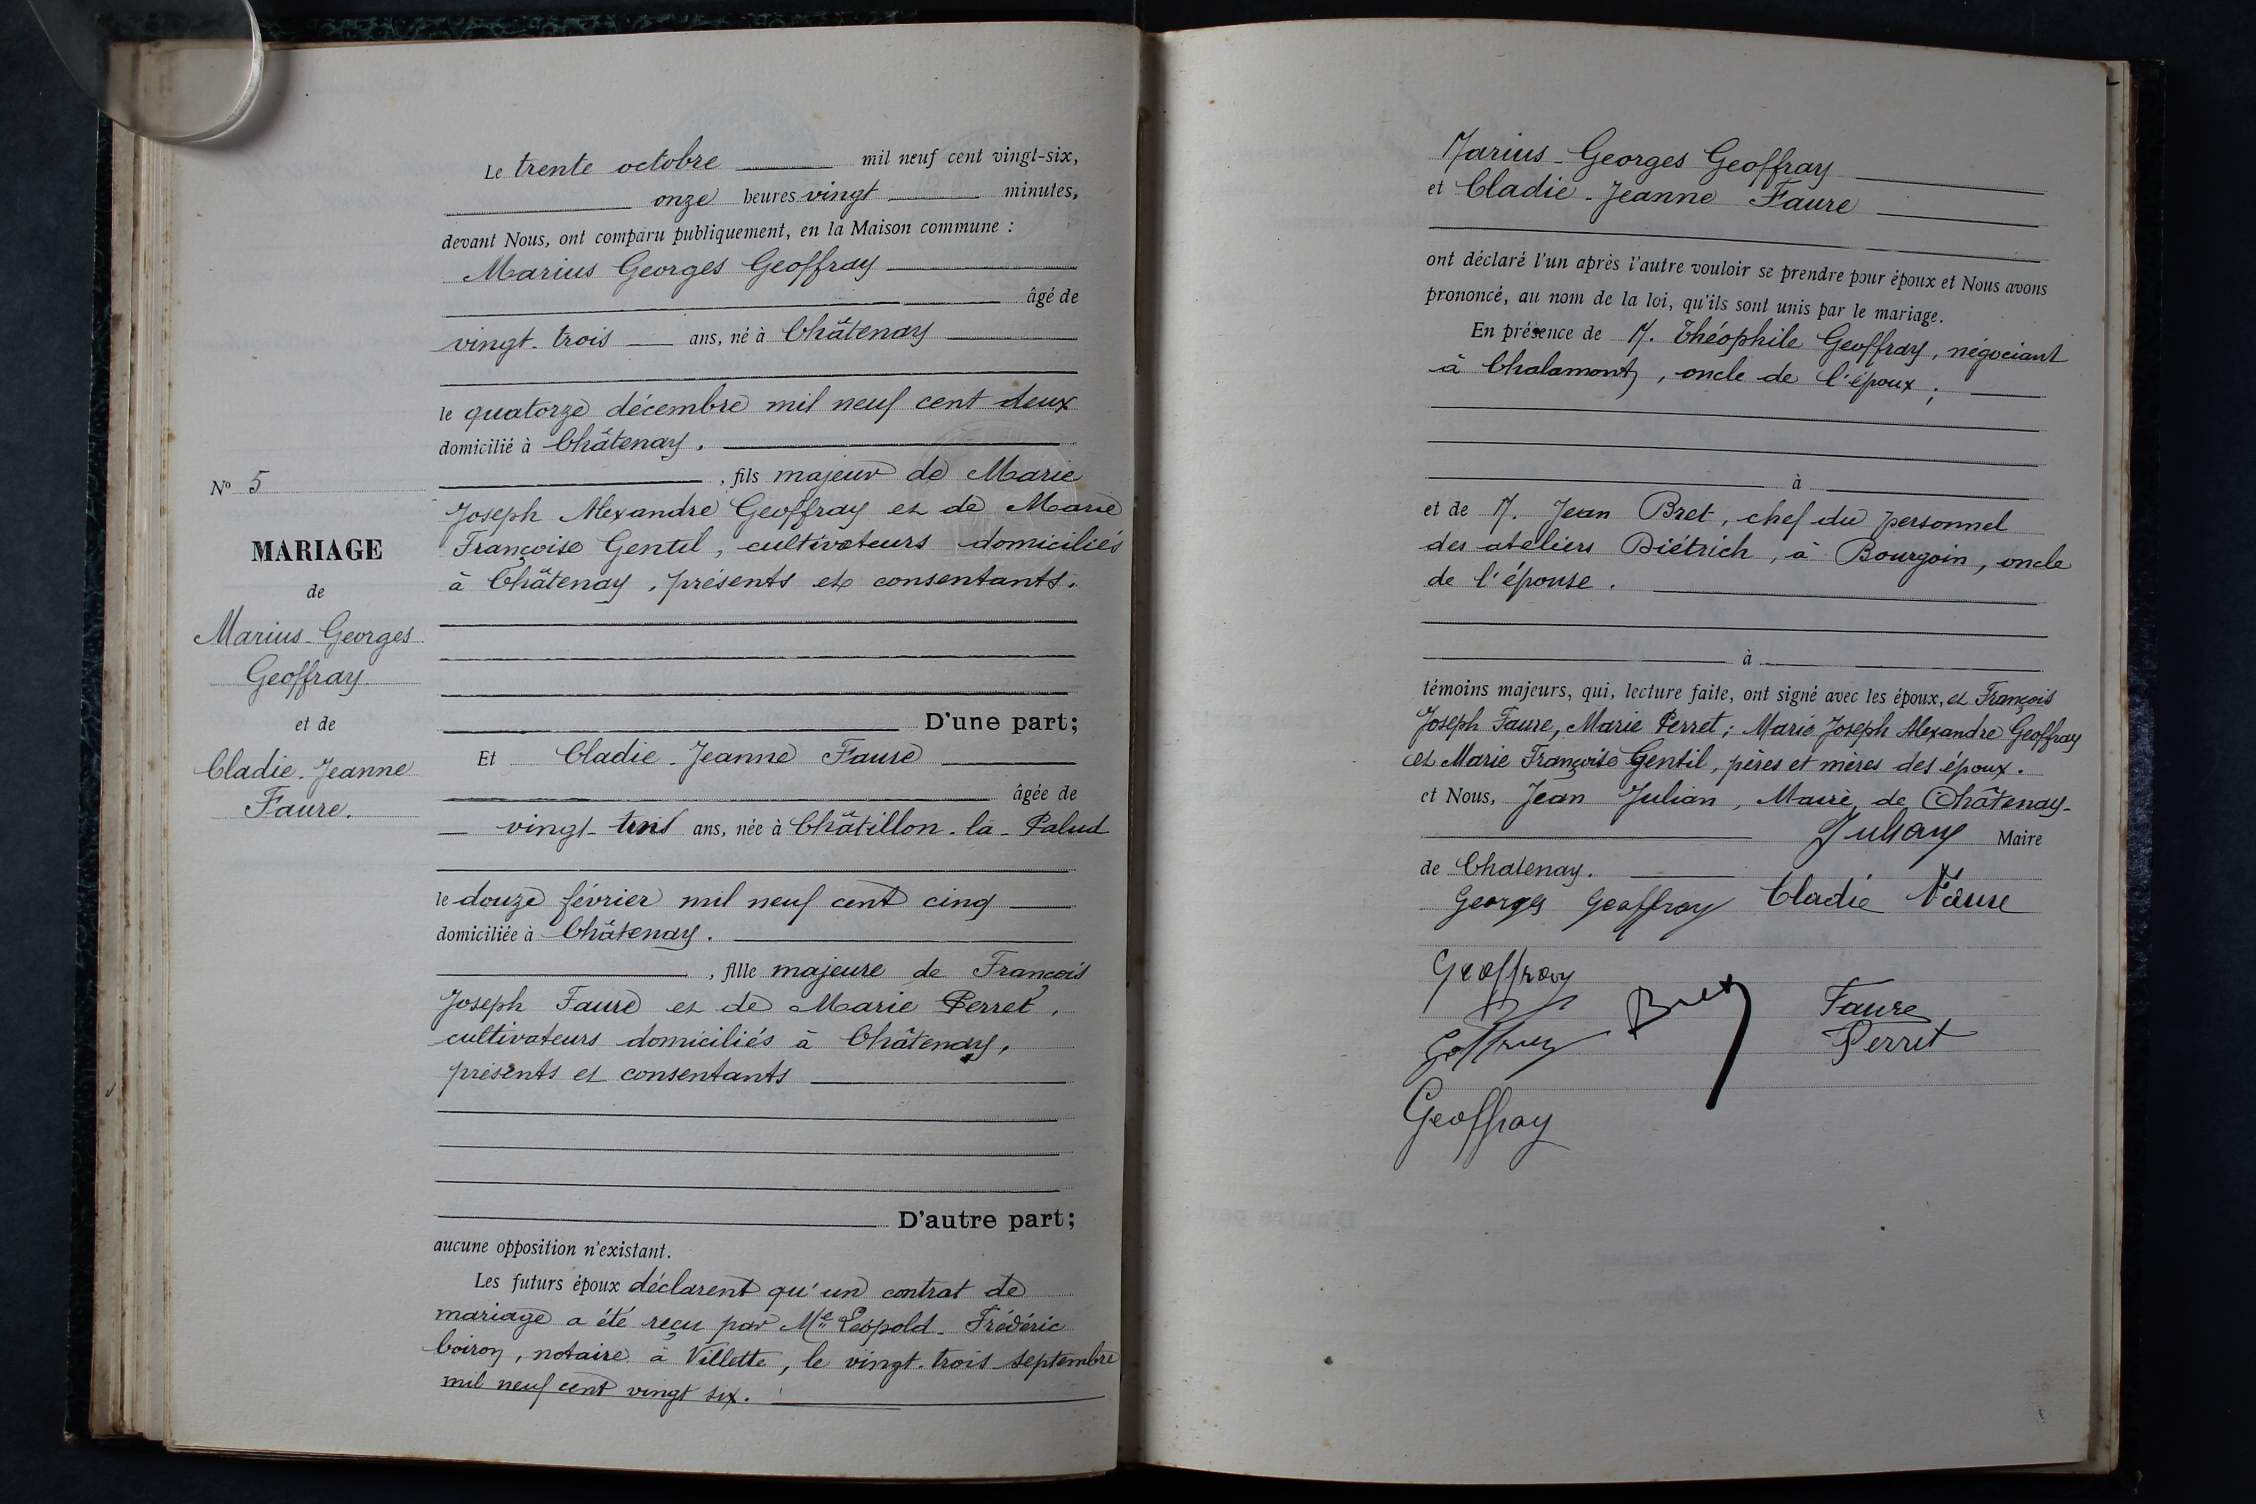 Le trente octobre mil neuf cent vingt-six,
onze heures vingt minutes,
devant Nous, ont comparu publiquement, en la Maison commune :
Marius Georges Geoffray
âgé de
vingt-trois ans, né à Châtenay
le quatorze décembre mil neuf cent deux
domicilié à Châtenay.
, fils majeur de Marie
Joseph Alexandre Geoffray et de Marie
Françoise Gentil, cultivateurs domiciliés
à Châtenay, présents et consentants.
D'une part;
Et Cladie-Jeanne Faure
âgée de
vingt- ans, née à Châtillon-la-Palud
le douze février mil neuf cent cinq
domiciliée à Châtenay.
, fille majeure de François
Joseph Faure et de Marie Perret,
cultivateurs domiciliés à Châtenay,
présents et consentants
D'autre part;
aucune opposition n'existant.
Les futurs époux déclarent qu'un contrat de
mariage a été reçu par Me Léopold-Frédéric
Coiron, notaire à Villette, le vingt-trois septembre
mil neuf cent vingt six.
N° 5
MARIAGE
de
Marius-Georges
Geoffray
et de
Cladie-Jeanne
Faure.
Marius-Georges Geoffray
et Cladie-Jeanne Faure
ont déclaré l'un après l'autre vouloir se prendre pour époux et Nous avons
prononcé, au nom de la loi, qu'ils sont unis par le mariage.
En présence de M. Théophile Geoffray, négociant
à Chalamont, oncle de l'époux;
à
et de M. Jean Bret, chef du personnel
des ateliers Diétrich, à Bourgoin, oncle
de l'épouse.
à
témoins majeurs, qui, lecture faite, ont signé avec les époux, et François
Joseph Faure, Marie Perret; Marie Joseph Alexandre Geoffray
et Marie Françoise Gentil, pères et mères des époux.
et Nous, Jean Julian, Maire de Châtenay-
Julian Maire
de Chatenay.
Georges Geoffray Cladie Faure
Geoffray
Bret Faure
Geoffray Perret
Geoffray